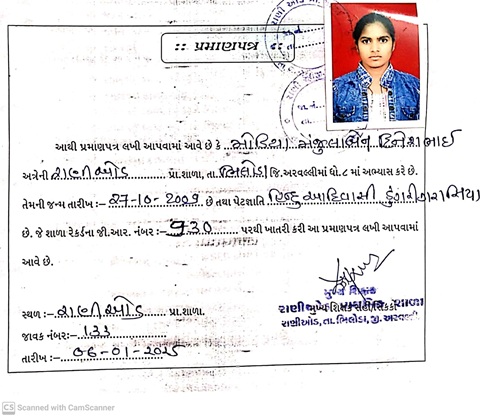 :: પ્રમાણપત્ર
આથી પ્રમાણપત્ર લખી આપવામાં આવે છે કે, મંજુલાબેન દિનેશભાઈ
અત્રેની રાણીઓડ પ્રા.શાળા, તા. ભિલોડા જિ.અરવલ્લીમાં ધો.૮ માં અભ્યાસ કરે છે.
તેમની જન્મ તારીખ :- 27-10-2009 છે તથા પેટાજ્ઞાતિ હિન્દુ આદિવાસી ડુંગરી ગરાસિયા
છે. જે શાળા રેકર્ડના જી.આર. નંબર :- 930 પરથી ખાતરી કરી આ પ્રમાણપત્ર લખી આપવામાં
આવે છે.
મુખ્ય શિક્ષક
સ્થળ :- રાણીઓડ પ્રા.શાળા.
રાણીઓડ, તા. ભિલોડા, જી. અરવલ્લી
જાવક નંબર:- 133
તારીખ :- 06-01-2025
CS Scanned with CamScanner